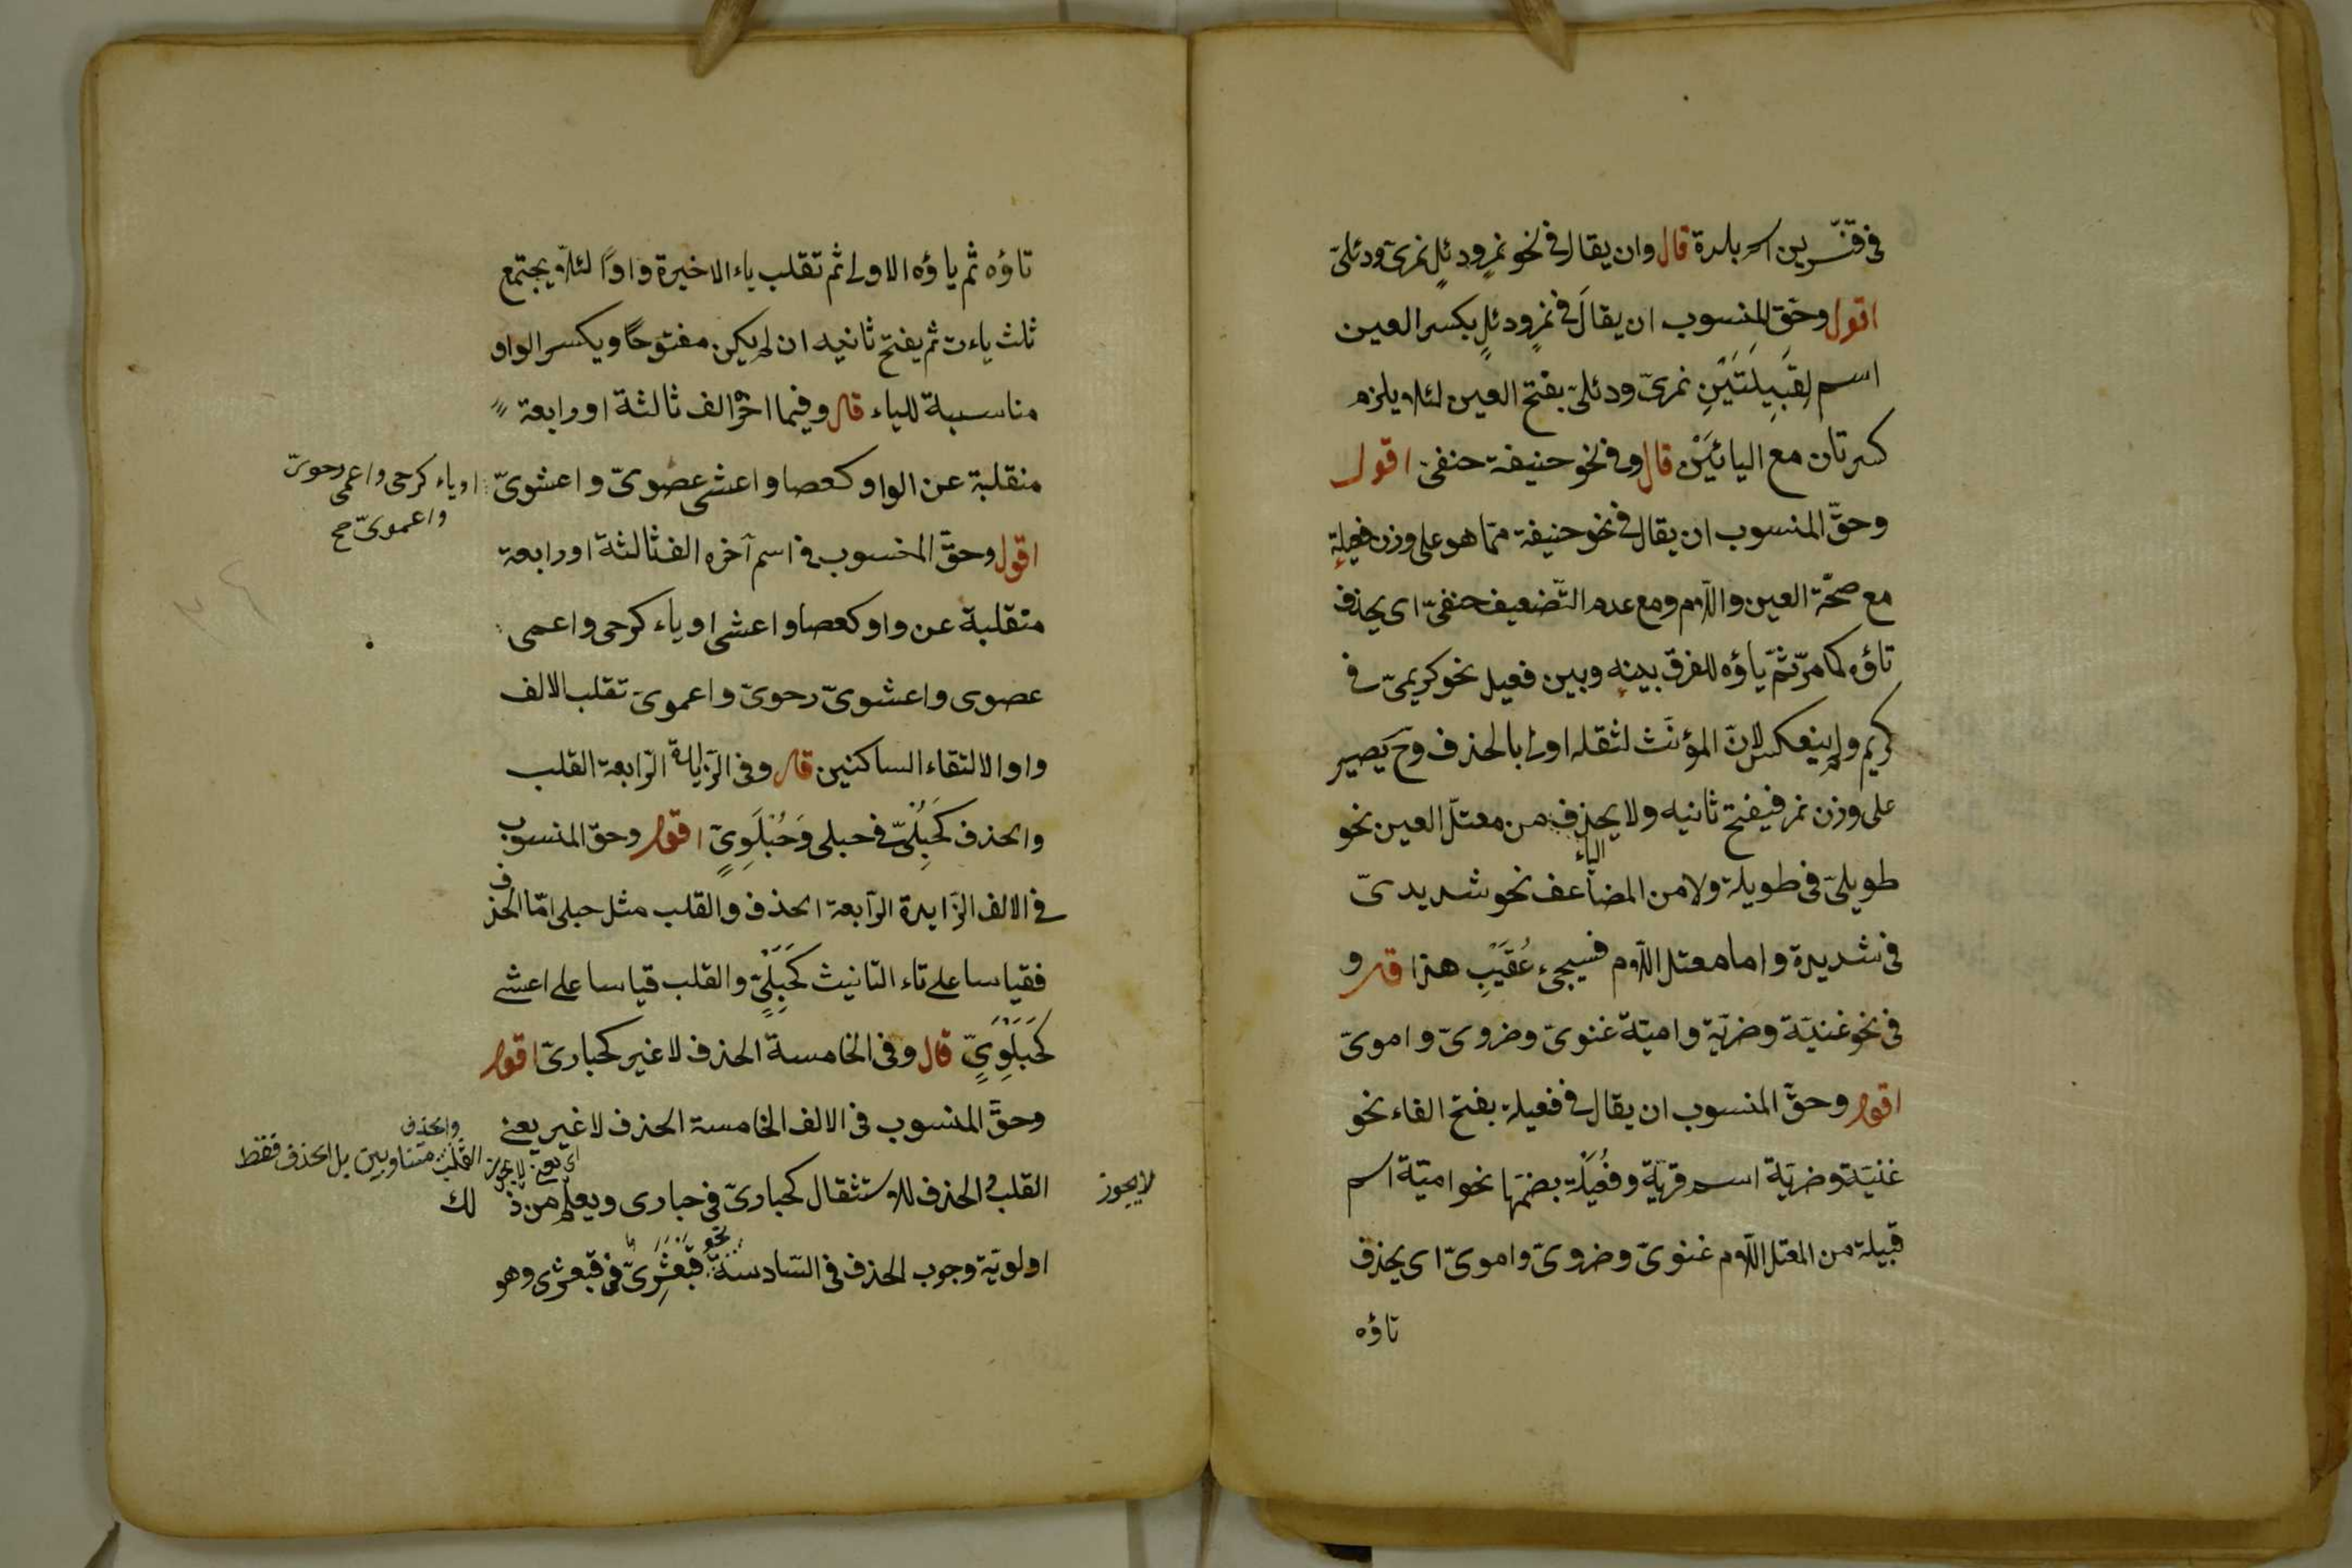 فى قنّسرين اسم بلدة قال وان يقال فى نحو نمرٍ ودئلٍ نمرىّ ودئلىّ
اقول وحقّ المنسوب ان يقالَ فى نمرٍ ودئلٍ بكسر العين
اسم لِقَبِيلَتَيْنِ نمرىّ ودئلىّ بفتح العين لئلا يلزم
كسرتان مع اليائَيْن قال وفى نحو حنيفة حنفىّ اقول
وحقّ المنسوب ان يقال فى نحو حنيفة ممّا هو على وزن فعيلة
مع صحّة العين واللّام ومع عدم التّضعيف حنفىّ اى يحذف
تاؤه كما مرّ ثمّ ياؤه للفرق بينه وبين فعيل نحو كريمىّ فى
كريم ولم ينعكس لانّ المؤنّث لثقله اولى بالحذف وح يصير
على وزن نمر فيفتح ثانيه ولا يحذف من معتلّ العين نحو
الياء
طويلىّ فى طويلة ولا من المضاعف نحو شديدىّ
فى شديدة واما معتل اللّام فسيجىء عُقَيْبِ هذا قال و
فى نحو غنيّة وضريّة واميّة غنوىّ وضروىّ واموىّ
اقول وحقّ المنسوب ان يقال فى فعيلة بفتح الفاء نحو
غنيّة وضريّة اسم قرية وفُعَيْلة بضمّها نحو اميّة اسم
قبيلة من المعتل اللّام غنوىّ وضروىّ واموىّ اى يحذف
تاؤه
تاؤه ثم ياؤه الاولى ثم تقلب ياء الاخيرة واوًا لئلّا يجتمع
ثلث ياءت ثم يفتح ثانيه ان لم يكن مفتوحًا ويكسر الواو
مناسبة للياء قال وفيما اخره الف ثالثة او رابعة
منقلبة عن الواو كعصا واعشى عصوىّ واعشوىّ
او ياء كرحى واعمى رحوىّ
واعموىّ صح
اقول وحقّ المنسوب فى اسم آخره الف ثالثة او رابعة
منقلبة عن واو كعصا واعشى او ياء كرحى واعمى
عصوى واعشوىّ رحوىّ واعموىّ تقلب الالف
واوا لالتقاء الساكنين قال وفى الزايدة الرّابعة القلب
والحذف كَحُبْلِىّ فى حبلى وَحُبْلَوِىٍّ اقول وحقّ المنسوب
فى الالف الزّايدة الرّابعة الحذف والقلب مثل حبلى امّا الحذف
فقياسا على تاء التانيث كَحُبْلِىٍّ والقلب قياسا على اعشى
كَحُبْلَوِىٍّ قال وفى الخامسة الحذف لا غير كحبارىّ اقول
وحقّ المنسوب فى الالف الخامسة الحذف لا غير يعنى
اى يعنى لا يجوز القلب والحذف متساويين بل الحذف فقط
لا يجوز
القلب والحذف للاستثقال كحبارىّ فى حبارى ويعلم من ذلك
اولويّة وجوب الحذف فى السّادسة نحو قَبَعْثَرِىّ فى قبعثرى وهو